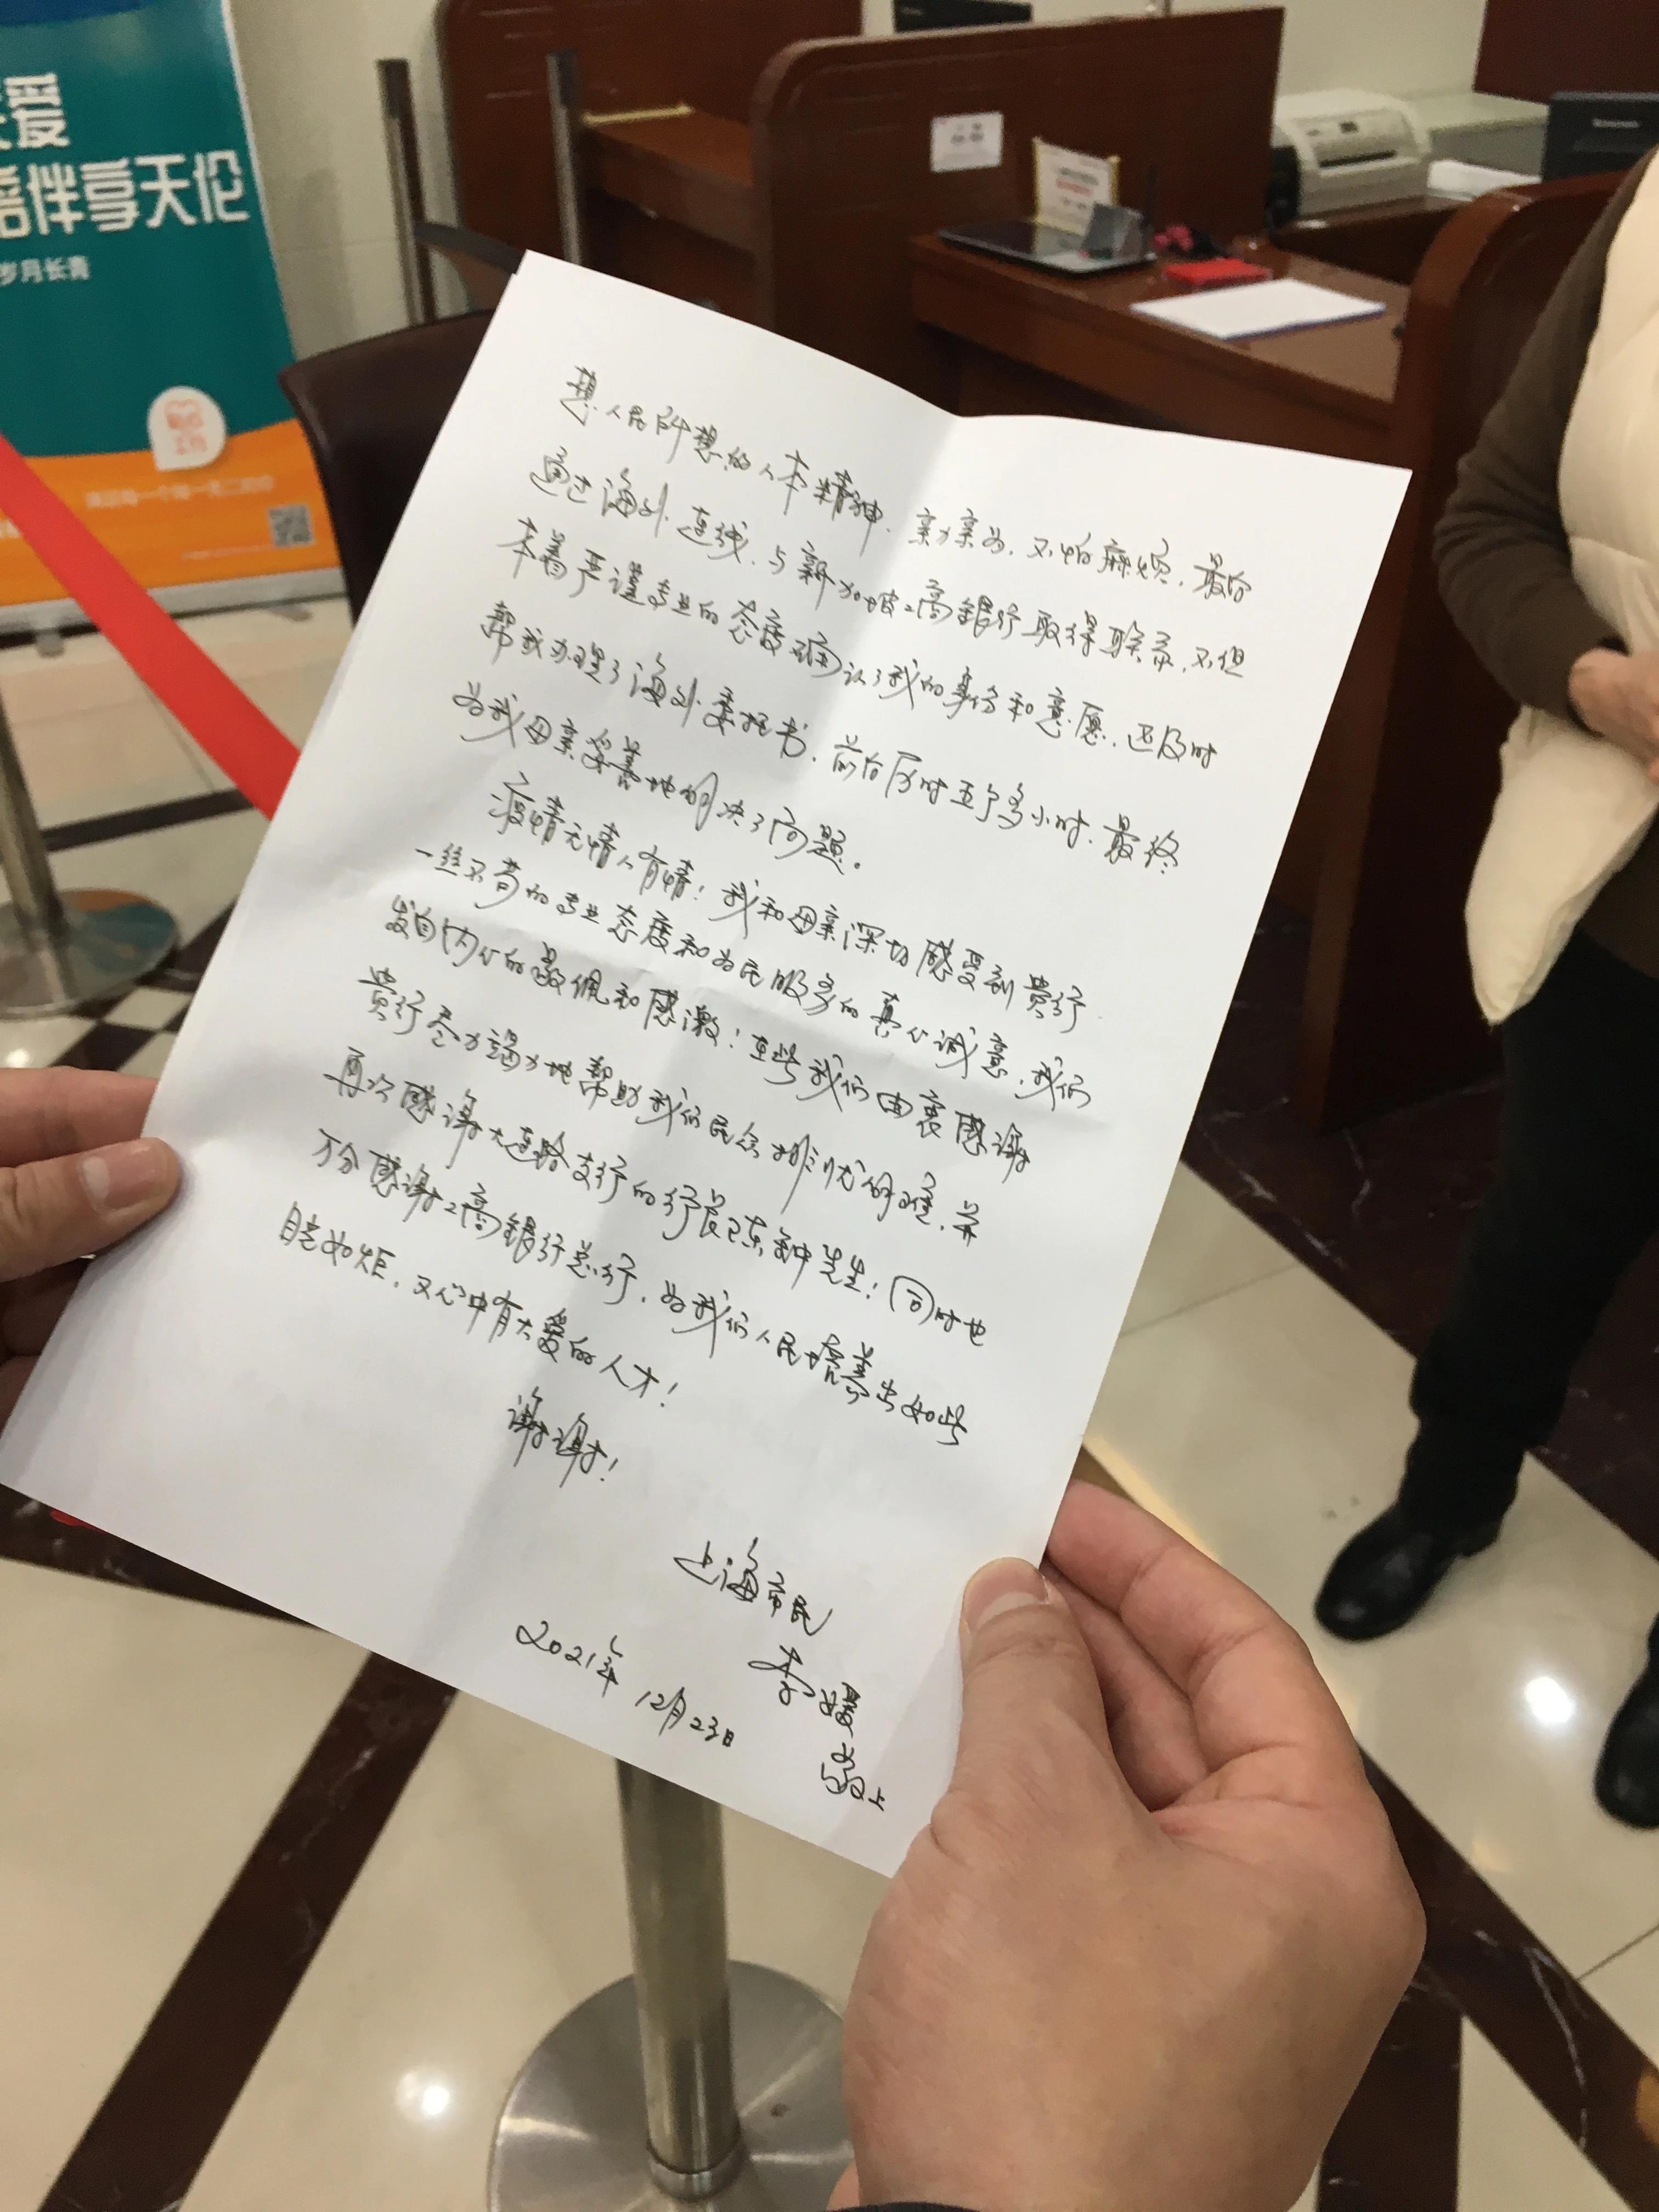 爱
陪伴享天伦
岁月长青
想人民所想的人本精神，亲力亲为，不怕麻烦，最后
通过海外连线，与新加坡工商银行取得联系，不但
本着严谨专业的态度确认了我的身份和意愿，还及时
帮我办理了海外委托书，前后历时五个多小时，最终
为我母亲妥善地解决了问题。
疫情无情人有情！我和母亲深切感受到贵行
一丝不苟的专业态度和为民服务的真心诚意，我们
发自内心的敬佩和感激！在此我们由衷感谢
贵行尽力竭力地帮助我们民众排忧解难，并
再次感谢大连路支行的行长陈钟先生！同时也
万分感谢工商银行总行，为我们人民培养出如此
目光如炬，又心中有大爱的人才！
谢谢！
上海市民
李媛
敬上
2021年12月23日